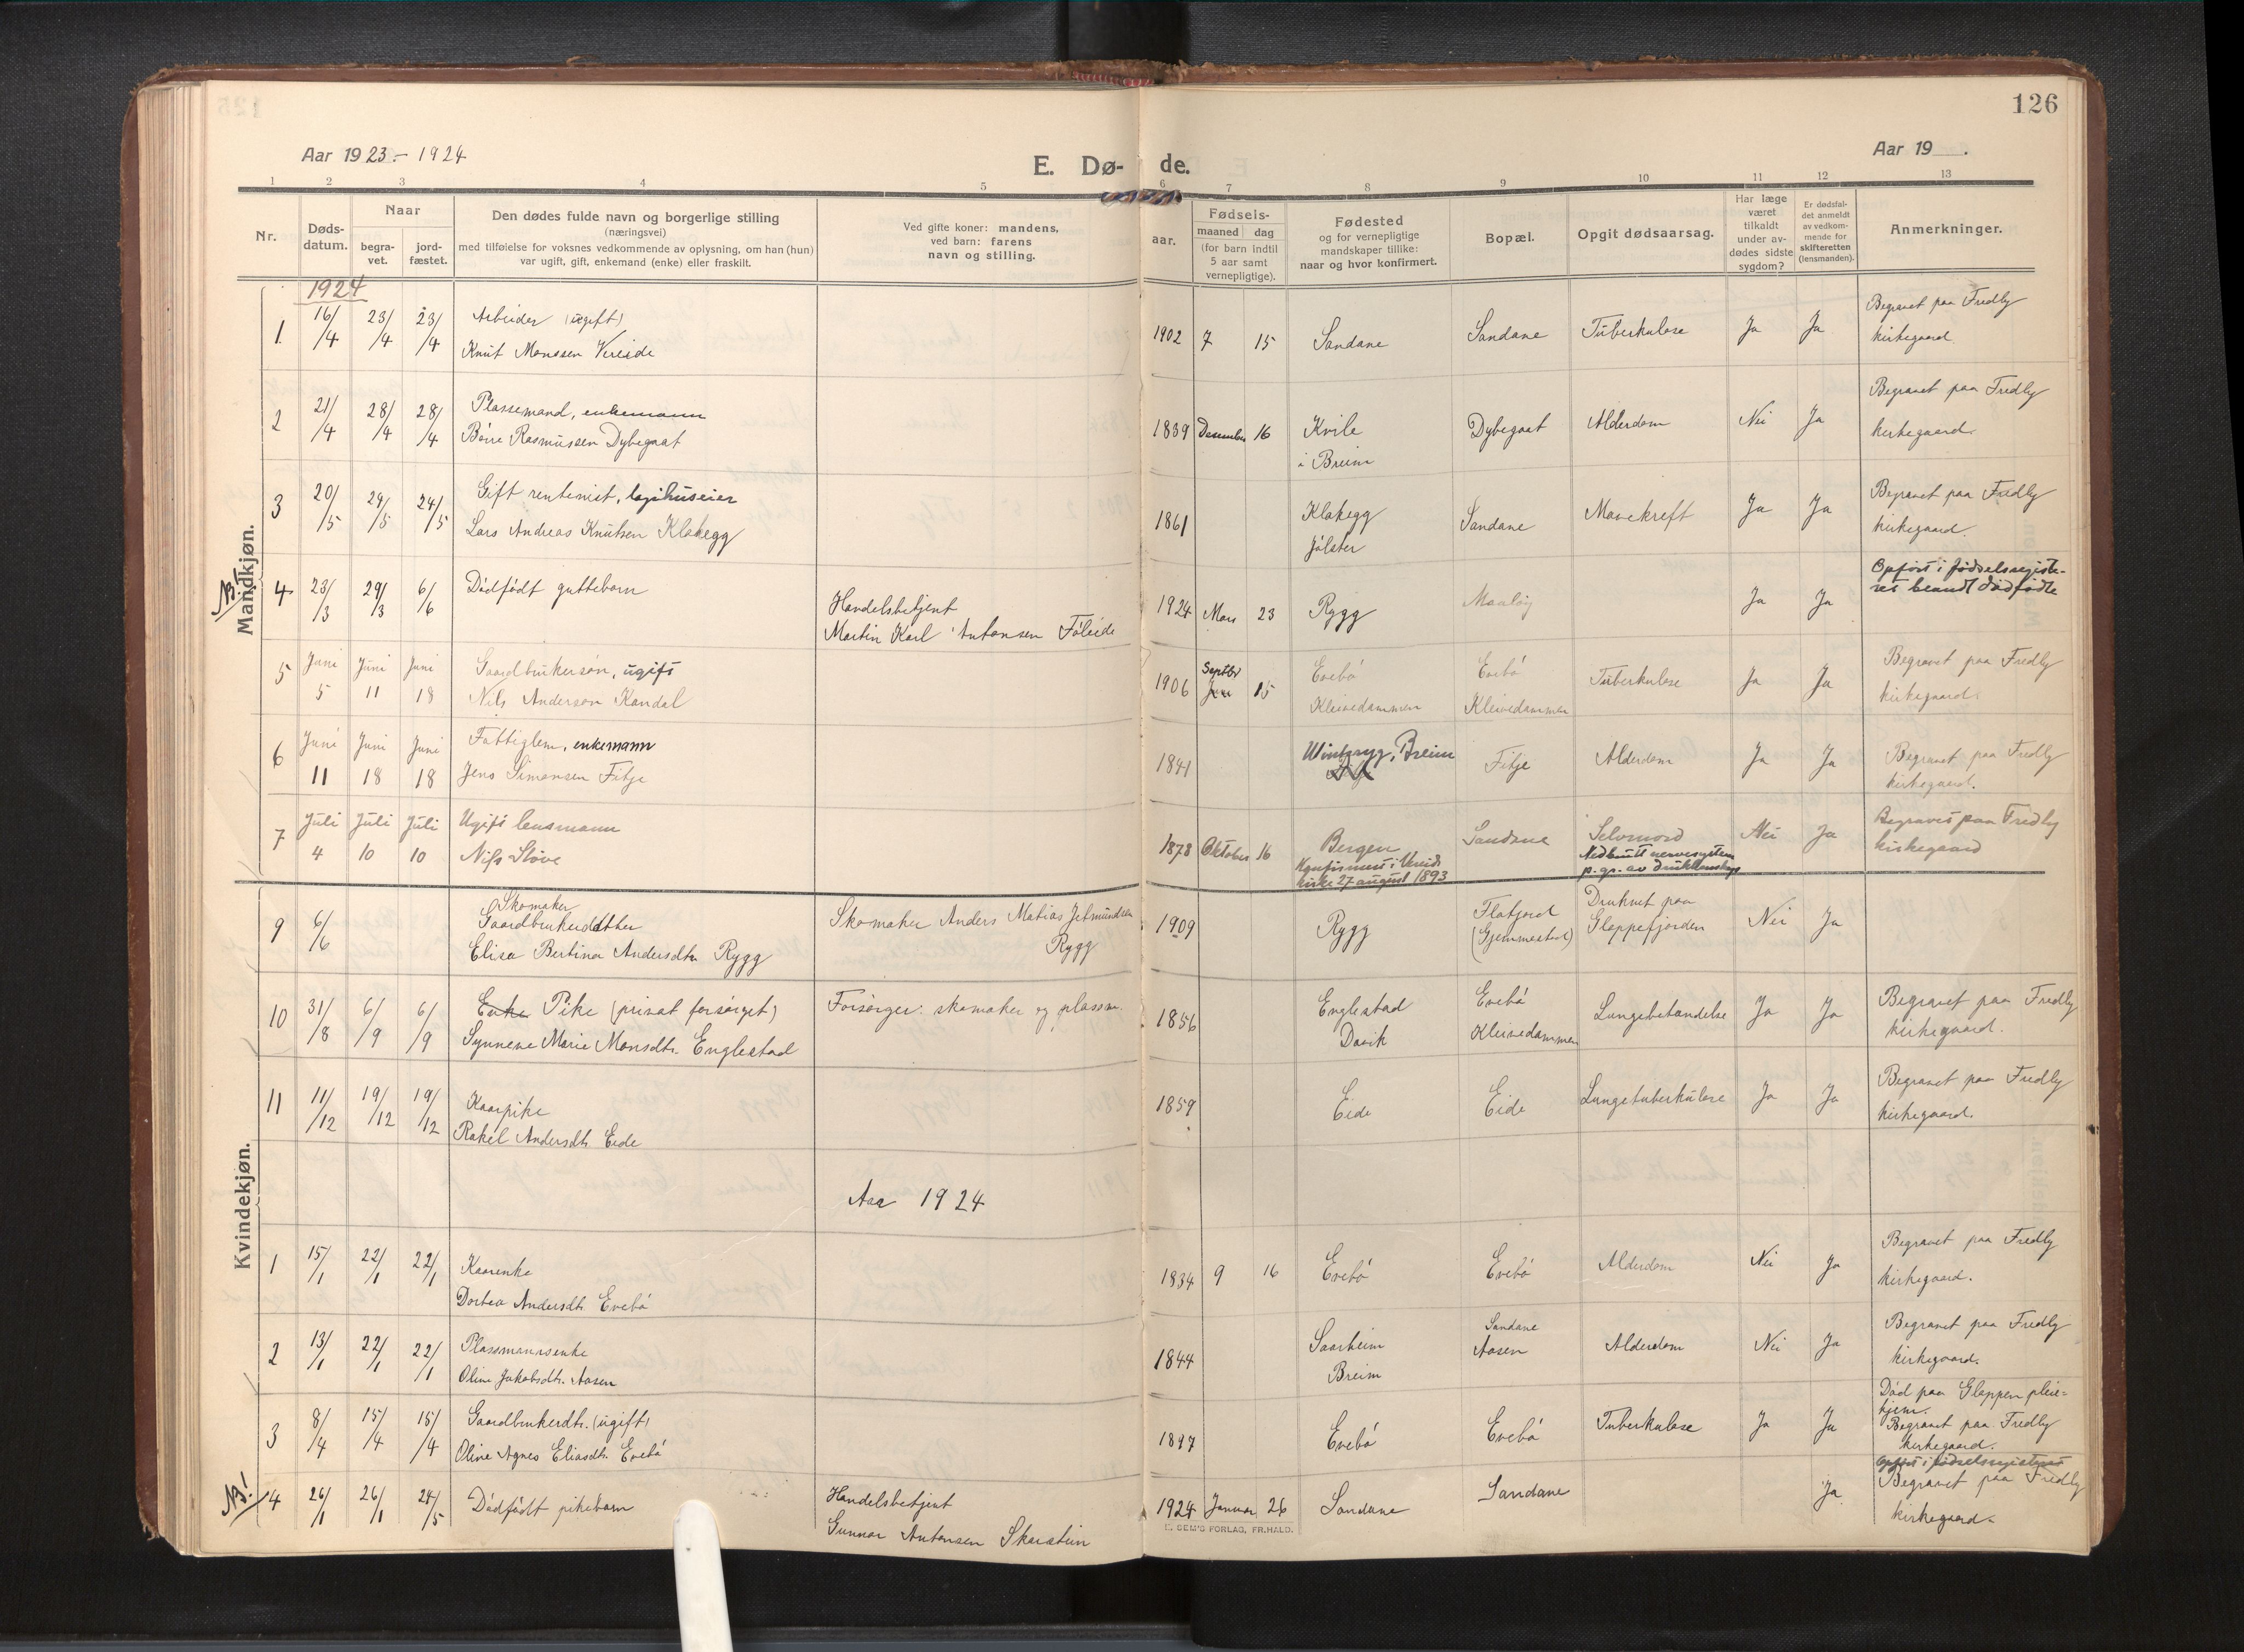 126
Aar 1923.-1924
E. Dø-
de.
Aar 19 .
1 2 3 4 5 6 7 8 9 10 11 12 13
Nr.
Døds-
datum.
Naar
begra-
vet.
jord-
fæstet.
Den dødes fulde navn og borgerlige stilling
(næringsvei)
med tilføielse for voksnes vedkommende av oplysning, om han (hun)
var ugift, gift, enkemand (enke) eller fraskilt.
Ved gifte koner: mandens,
ved barn: farens
navn og stilling.
aar.
Fødsels-
maaned dag
(for barn indtil
5 aar samt
vernepligtige).
Fødested
og for vernepligtige
mandskaper tillike:
naar og hvor konfirmert.
Bopæl.
Opgit dødsaarsag.
Har læge
været
tilkaldt
under av-
dødes sidste
sygdom?
Er dødsfal-
det anmeldt
av vedkom-
mende for
skifteretten
(lensmanden).
Anmerkninger.
Mandkjøn.
1924
1. 16/4 23/4 23/4 Arbeider (ugift)
Knut Monssen Vereide
1902 7 15 Sandane Sandane Tuberkulose Ja Ja Begravet paa Fredly
kirkegaard.
2 21/4 28/4 28/4 Plassemand, enkemann
Böire Rasmussen Dybegaat
1839 Desember 16 Kvile
i Breim
Dybegaat Alderdom Nei Ja Begravet paa Fredly
kirkegaard.
3 20/5 24/5 24/5 Gift rentenist, losjihuseier
Lars Andreas Knutsen Klakegg
1861 Klakegg
Jölster
Sandane Mavekreft Ja Ja Begravet paa Fredly
kirkegaard.
NB!
4 23/3 29/3 6/6 Dödfödt guttebarn
Handelsbetjent
Martin Karl Antonsen Föleide
1924 Mars 23 Rygg Maalöy Ja Ja Opfört i fødselsregiste-
ret blandt dødfødte
5 Juni 5 Juni 11 Juni 18 Gaardbrukersön, ugift
Nils Anderson Kandal
1906 Septbr Juni 15 Evebö
Kleivedammen
Evebö
Kleivedammen
Tuberkulose Ja Ja Begravet paa Fredly
kirkegaard.
6 Juni 11 Juni 18 Juni 18 Fattiglem, enkemann
Jens Simonsen Fitje
1841 Mindresyg, Breim
Fitje Alderdom Ja Ja Begravet paa Fredly
kirkegaard.
7 Juli 4 Juli 10 Juli 10 Ugift lensmann
Nils Löve
1878 Oktober 16 Bergen
Konfirmert i Vereide
kirke 27 august 1893
Sandane Selvmord
Nedbrutt nervesystem
p. gr. av drikkenskap
Nei Ja Begravet paa Fredly
kirkegaard
Kvindekjøn.
9 6/6 Skomaker
Gaardbrukerdatter
Elisa Bertina Andersdtr Rygg
Skomaker Anders Matias Jetmundsen
Rygg
1909 Rygg Flotjord
(Gjemmestad)
Druknet paa
Gloppefjorden
Nei Ja
10 31/8 6/9 6/9 Enke Pike (privat forsörget)
Synneve Marie Monsdtr. Englestad
Forsörger: skomaker og plassm.
1856 Englestad
Davik
Evebö
Kleivedammen
Lungebetændelse Ja Ja Begravet paa Fredly
kirkegaard.
11 11/12 19/12 19/12 Kaarpike
Rakel Andersdtr. Eide
1859 Eide Eide Lungetuberkulose Ja Ja Begravet paa Fredly
kirkegaard.
Aar 1924
1 15/1 22/1 22/1 Kaarenke
Dortea Andersdtr. Evebö
1834 9 16 Evebö Evebö Alderdom Nei Ja Begravet paa Fredly
kirkegaard.
2 13/1 22/1 22/1 Plassmannsenke
Oline Jakobsdtr. Aasen
1844 Saarheim
Breim
Sandane
Aasen
Alderdom Nei Ja Begravet paa Fredly
kirkegaard.
3 8/4 15/4 15/4 Gaardbrukerdtr. (ugift)
Oline Agnes Eliasdtr. Evebö
1897 Evebö Evebö Tuberkulose Ja Ja Död paa Gloppen pleie-
hjem.
Begravet paa Fredly
kirkegaard.
NB!
4 26/1 26/1 24/5 Dödfödt pikebarn
Handelsbetjent
Gunnar Antonsen Skarstein
1924 Januar 26 Sandane Sandane Ja Opført i fødselsregisteret
Begravet paa Fredly
kirkegaard.
E. SEM'S FORLAG, FR.HALD.